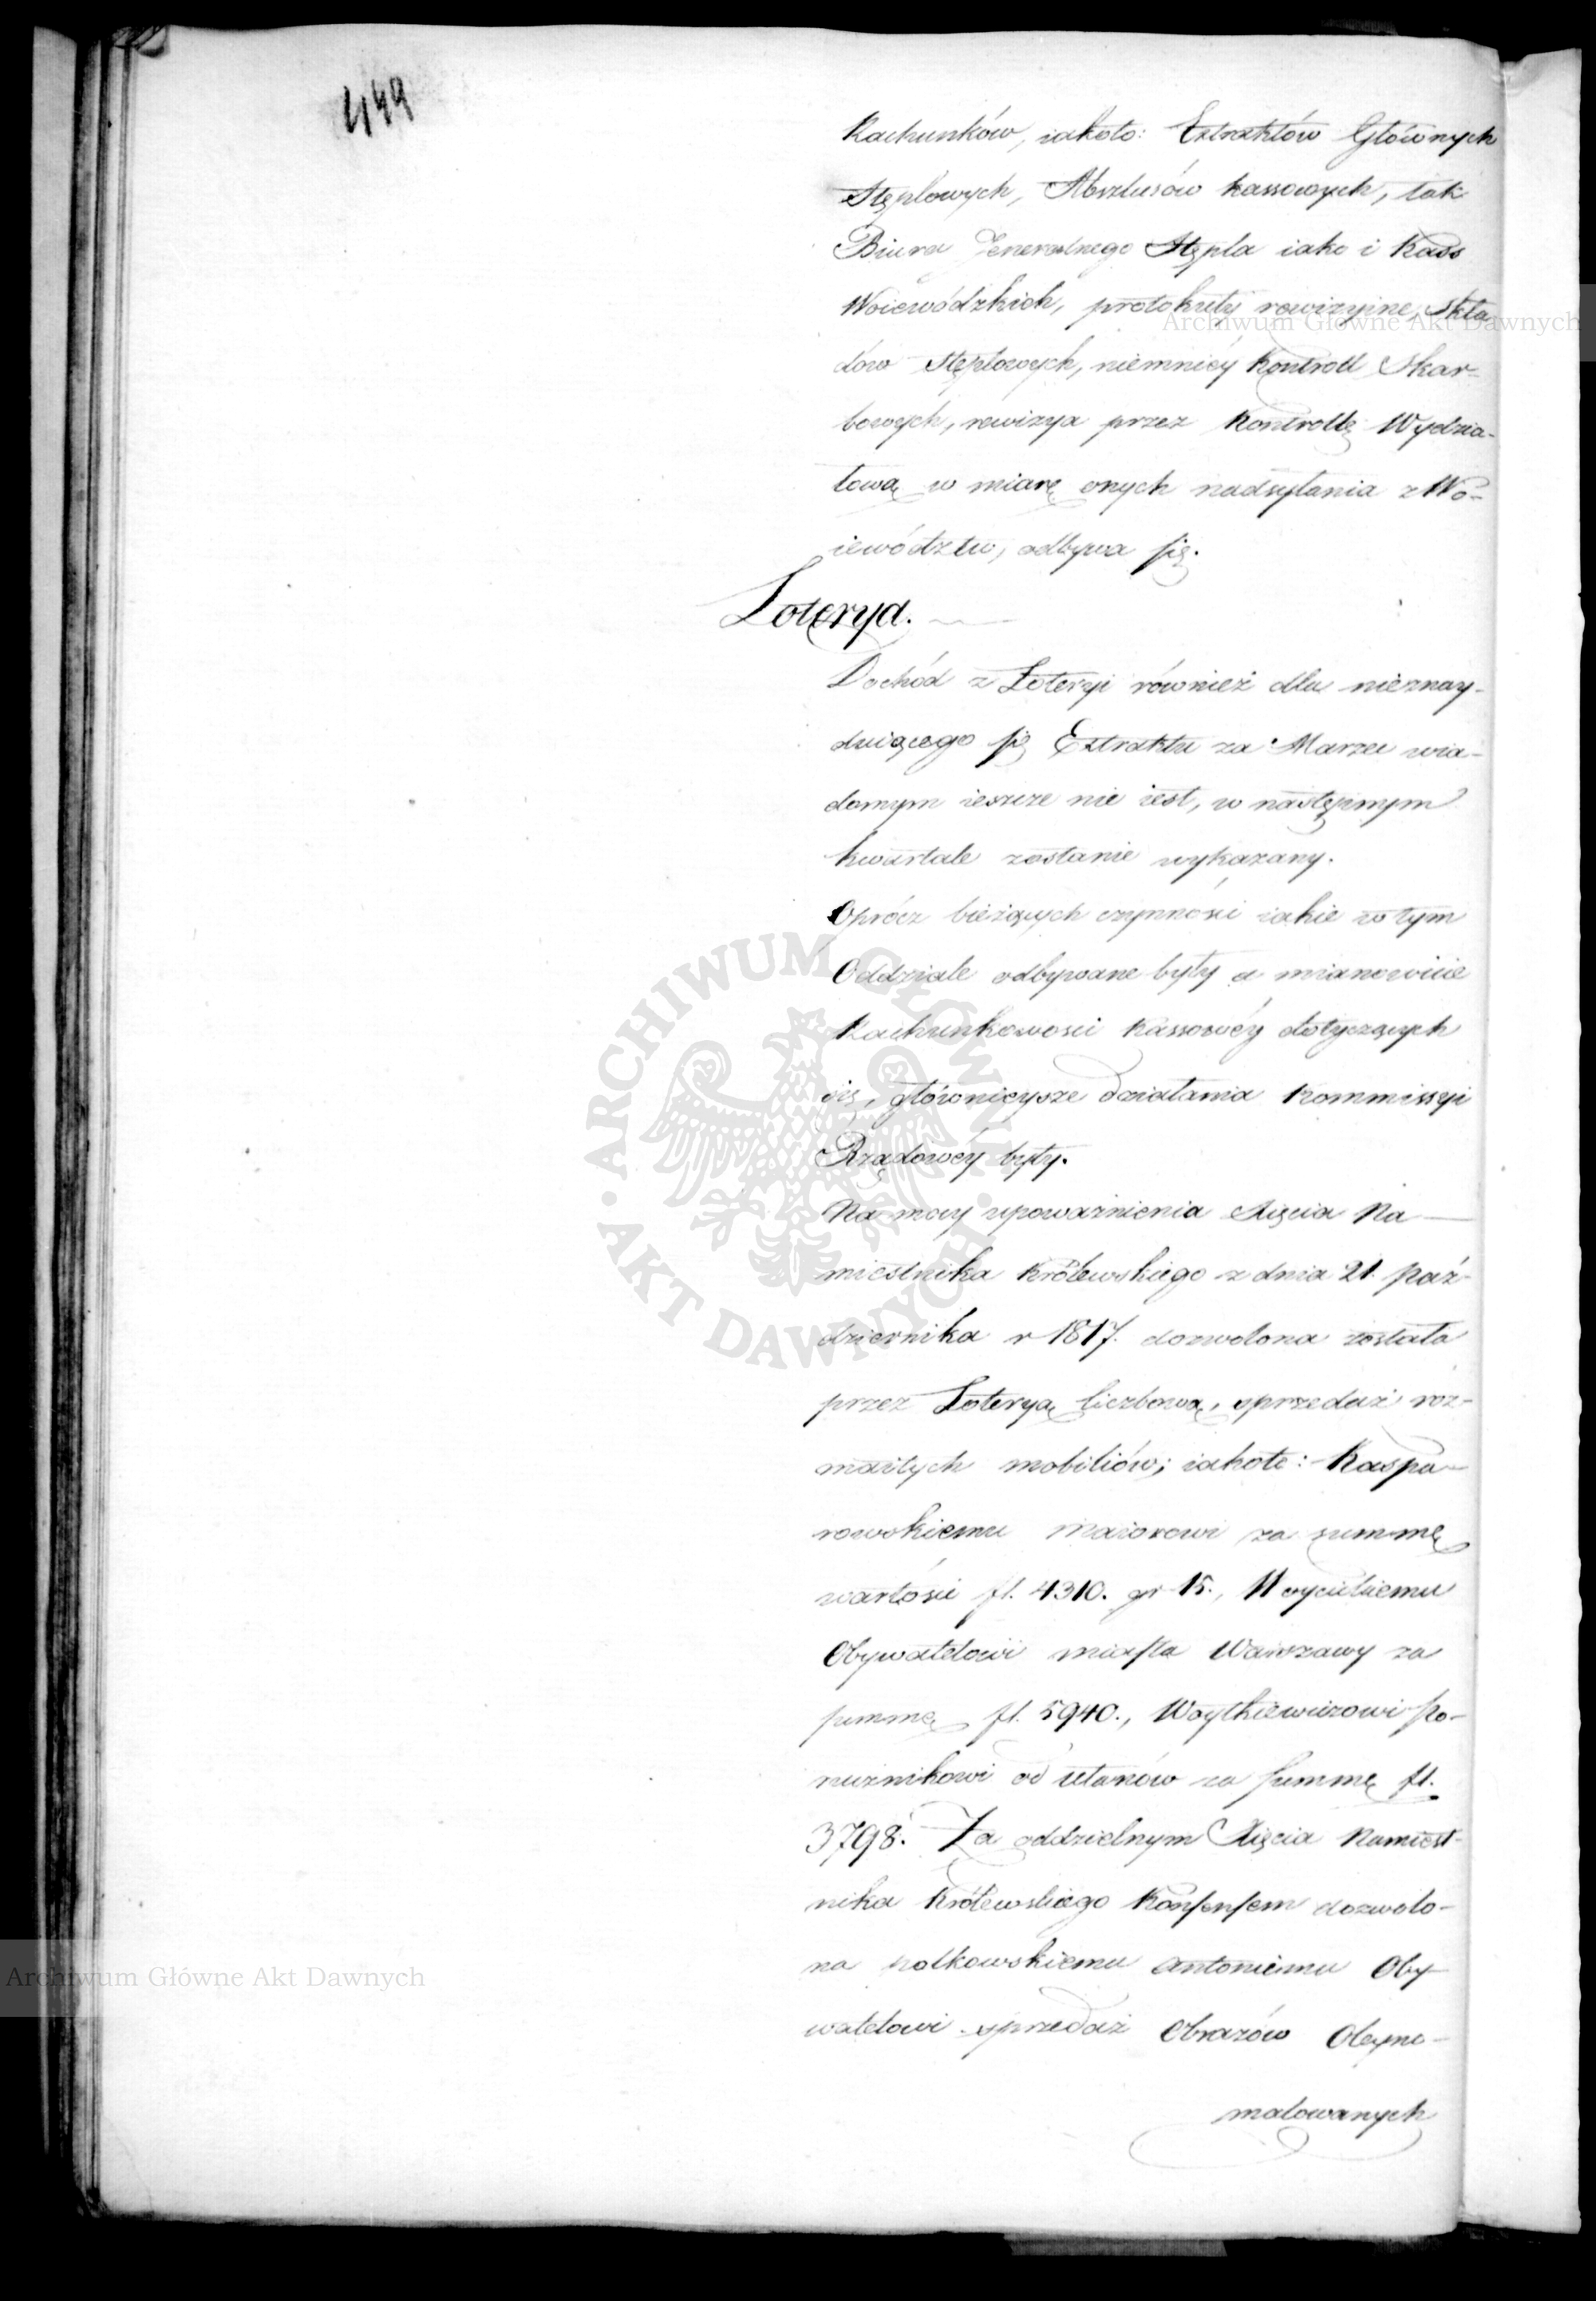 449
Rachunków, iakoto: Extraktów Głównych
Stęplowych, Abszlusów kassowych, tak
Biura Jeneralnego Stępla iako i Kass
Woiewódzkich, protokuły rewizyine, Skła
dów Stęplowych, niemniéy Kontroll Skar-
bowych, rewizya przez Kontrollę Wydzia-
łową w miarę onych nadsyłania z Wo-
iewództw, odbywa się.
Loterya.
Dochód z Loteryi również dla nieznay-
duiącego się Extraktu za Marzec wia-
domym ieszcze nie iest, w następnym
kwartale zostanie wykazany.
Oprócz bieżących czynności iakie w tym
Oddziale odbywane były a mianowicie
Rachunkowości Kassowéy dotyczących
się, główniejsze działania Kommissyi
Rządowéy były.
Na mocy upoważnienia Xięcia Na-
miestnika Królewskiego z dnia 21. paź-
dziernika r 1817. dozwolona została
przez Loteryą liczbową, sprzedaż roz-
maitych mobiliów; iakoto: Kaspa-
rowskiemu Maiorowi za summę
wartości fl. 4310. gr 15.,
Obywatelowi miasta Warszawy za
summę fl. 5940., Woytkiewiczowi Po-
rucznikowi od ułanów za summę fl.
3798. Za oddzielnym Xięcia Namiest-
nika Królewskiego Konsensem dozwolo-
na Antoniemu Oby-
watelowi sprzedaż Obrazów Oleyno-
malowanych
Archiwum Główne Akt Dawnych
Archiwum Główne Akt Dawnych
ARCHIWUM GŁÓWNE · AKT DAWNYCH ·